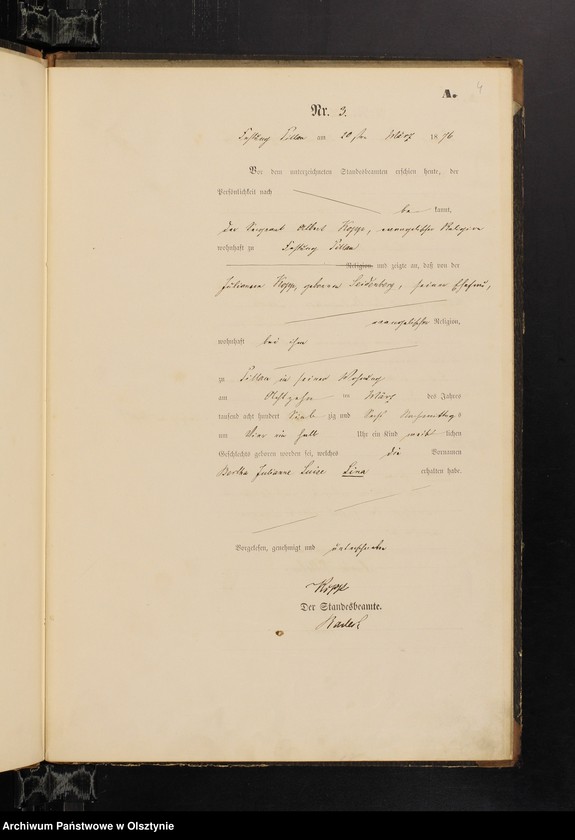 A. 4
Nr. 3.
Festung Pillau am 20 ten März 1876
Vor dem unterzeichneten Standesbeamten erschien heute, der
Persönlichkeit nach
be kannt,
der Sergeant Albert Kopp, evangelischer Religion
wohnhaft zu Festung Pillau
Religion, und zeigte an, daß von der
Julianna Kopp, geborene Seidenberg, seiner Ehefrau,
evangelischer Religion,
wohnhaft bei ihm
zu Pillau in seiner Wohnung
am Achtzehn ten März des Jahres
tausend acht hundert Sieben zig und Sechs Nachmittags
um Vier ein halb Uhr ein Kind weib lichen
Geschlechts geboren worden sei, welches die Vornamen
Bertha Julianne Luise Lina erhalten habe.
Vorgelesen, genehmigt und unterschrieben
Kopp
Der Standesbeamte.
Archiwum Państwowe w Olsztynie